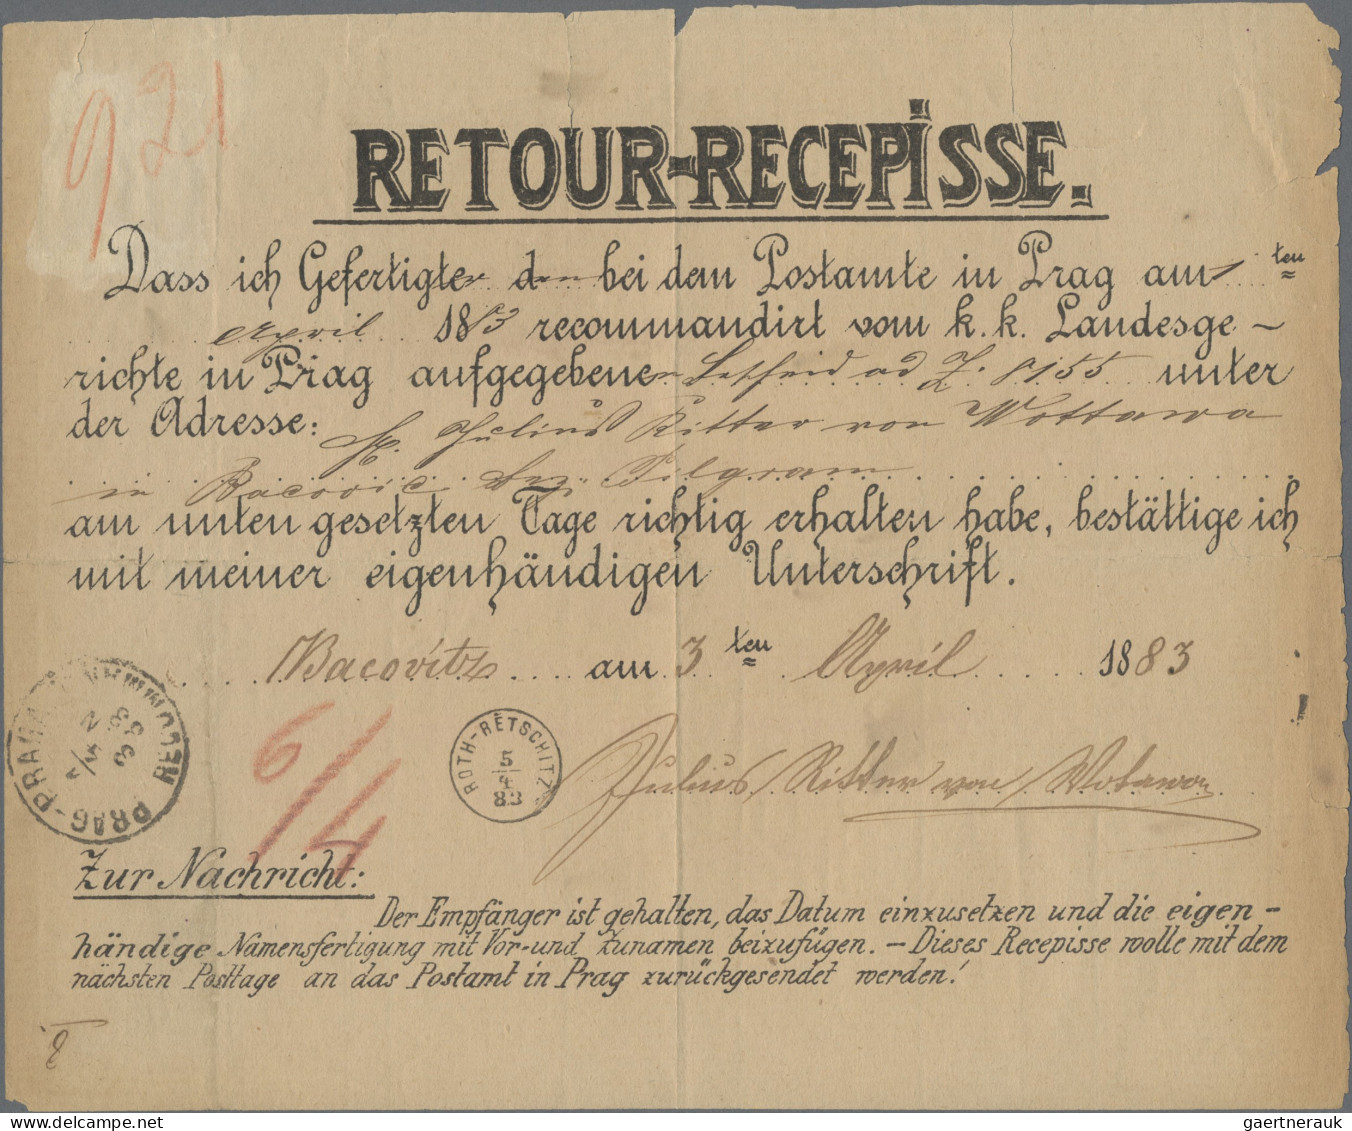 921
RETOUR-RECEPISSE.
Dass ich Gefertigter den bei dem Postamte in Prag am 1 ten
April 1883 recommandirt vom k. k. Landesge-
richte in Prag aufgegebenen Bescheid ad Z. 8155 unter
der Adresse: H. Julius Ritter von Wottawa
in Bacovic Bez. Pilgram
am unten gesetzten Tage richtig erhalten habe, bestättige ich
mit meiner eigenhändigen Unterschrift.
Bacovitz am 3 ten April 1883
PRAG-PRAHA RECO
6/4
ROTH-RĔTSCHITZ
5/4
83
Julius Ritter von Wotawa
Zur Nachricht:
Der Empfänger ist gehalten, das Datum einzusetzen und die eigen-
händige Namensfertigung mit Vor-und Zunamen beizufügen. — Dieses Recepisse wolle mit dem
nächsten Posttage an das Postamt in Prag zurückgesendet werden!
gaertnerauk